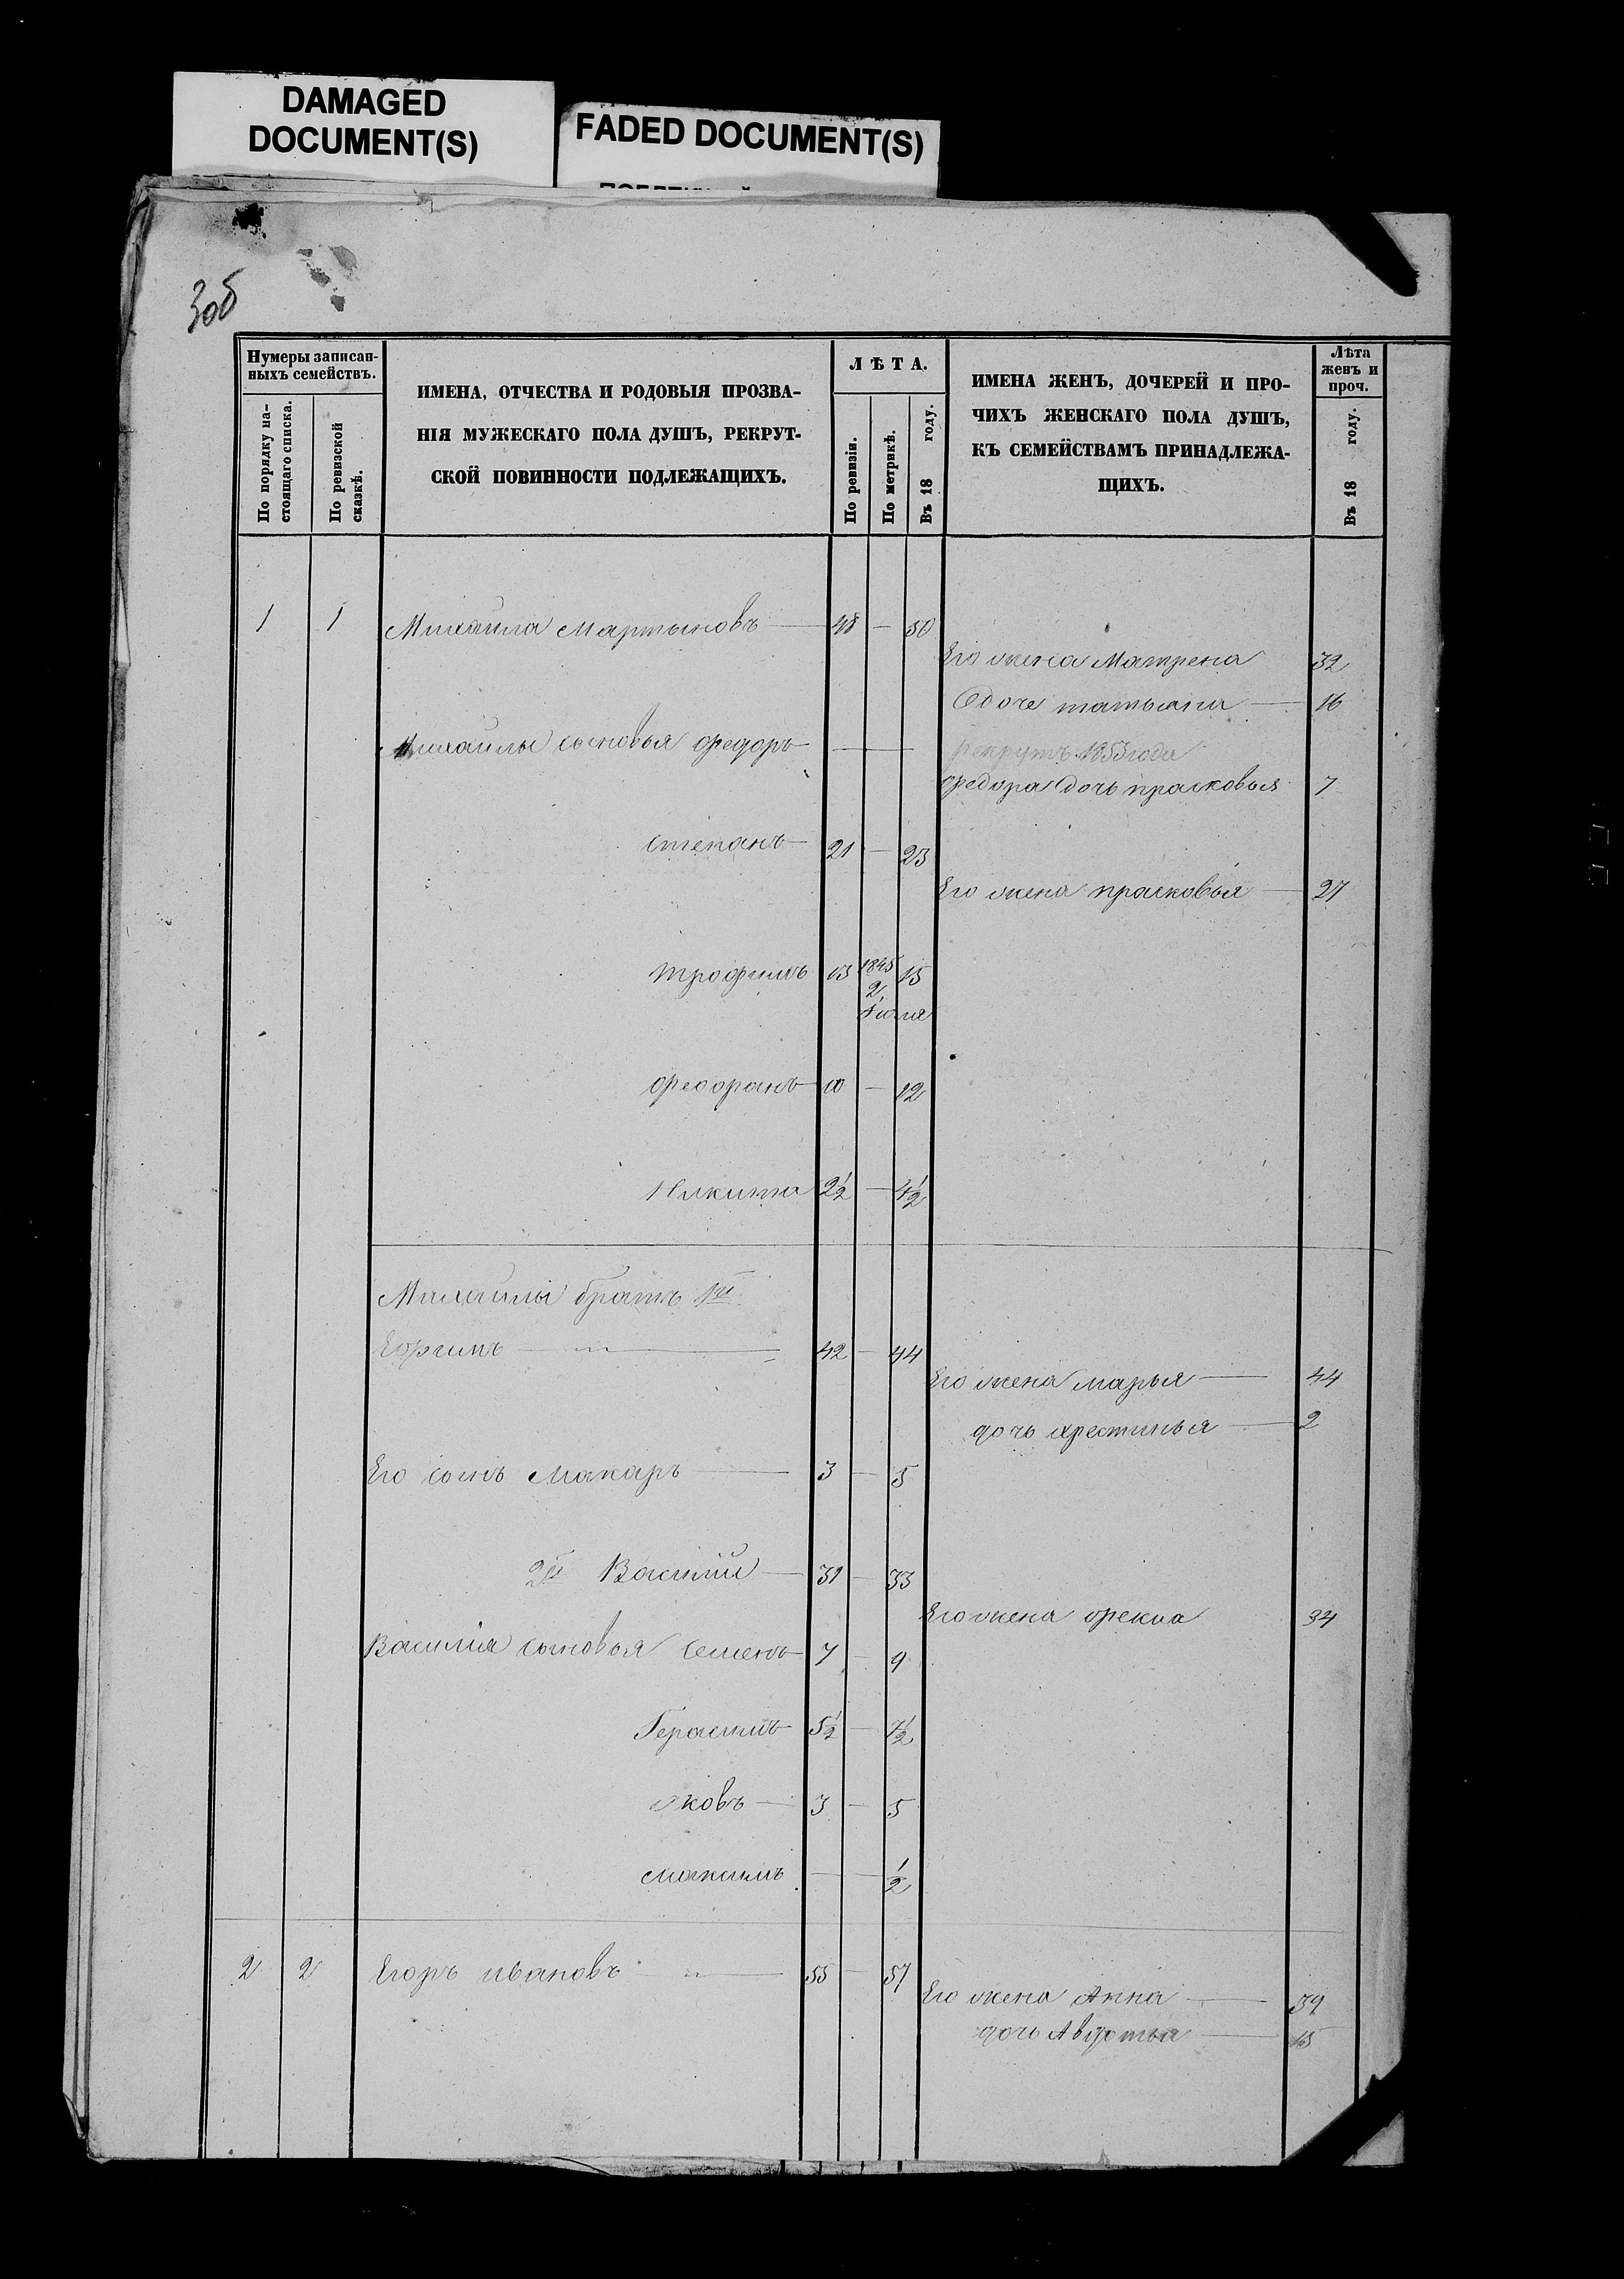 DAMAGED
DOCUMENT(S)
FADED DOCUMENT(S)
3об
Нумеры записан-
ныхъ семействъ.
По порядку на-
стоящаго списка.
По ревизской
сказкѣ.
ИМЕНА, ОТЧЕСТВА И РОДОВЫЯ ПРОЗВА-
НІЯ МУЖЕСКАГО ПОЛА ДУШЪ, РЕКРУТ-
СКОЙ ПОВИННОСТИ ПОДЛЕЖАЩИХЪ.
ЛѢТА.
По ревизіи.
По метрикѣ.
Въ 18 году.
ИМЕНА ЖЕНЪ, ДОЧЕРЕЙ И ПРО-
ЧИХЪ ЖЕНСКАГО ПОЛА ДУШЪ,
КЪ СЕМЕЙСТВАМЪ ПРИНАДЛЕЖА-
ЩИХЪ.
Лѣта
женъ и
проч.
Въ 18 году.
1 1 Михайла Мартыновъ — 48 — 50
Его жена Матрена 32
татьяна — 16
Михайлы сыновья федоръ — —
рекрутъ 1853 года
федора дочь прасковья 7
степанъ — 21 — 23
Его жена прасковья — 27
трофимъ 13 1845 15
2
Июля
— 12
Никита 2½ — 4½
Михайлы братъ 1й
42 — 44
Его жена марья — 44
дочь хрестинья — 2
Его сынъ Макаръ — 3 — 5
2й Василий — 31 — 33
Его жена 34
Василия сыновья Семенъ — 7 — 9
Герасимъ — 5½ — 7½
яковъ — 3 — 5
максимъ — — ½
2 2 Егоръ ивановъ — 55 — 57
Его жена Анна — 39
дочь Авдотья — 15